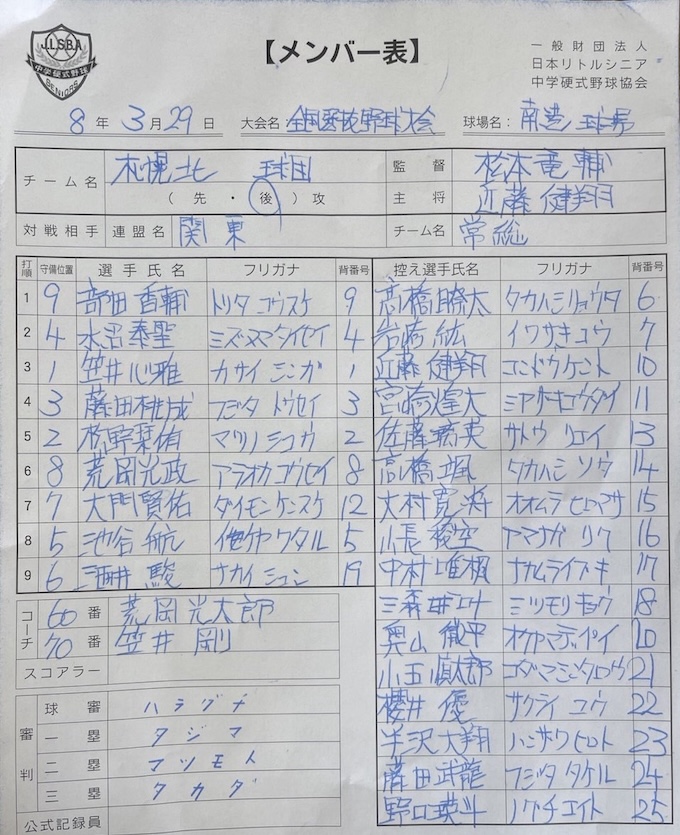 J.L.S.B.A
中学硬式野球
SENIORS
【メンバー表】
一般財団法人
日本リトルシニア
中学硬式野球協会
8年 3月29日 大会名: 全国選抜野球大会 球場名: 南港 球場
チーム名 札幌北 球団 監督 松本竜輔
(先・後)攻 主将 近藤健翔
対戦相手 連盟名 関東 チーム名 常総
打順 守備位置 選手氏名 フリガナ 背番号 控え選手氏名 フリガナ 背番号
1 9 トリタ コウスケ 9 高橋瞭太 タカハシリョウタ 6
2 4 水沼泰聖 ミズヌマタイセイ 4 岩崎紘 イワサキコウ 7
3 1 笠井心雅 カサイ シンガ 1 近藤健翔 コンドウケント 10
4 3 藤田桃成 フジタ トウセイ 3 宮崎煌大 ミヤザキコウダイ 11
5 2 松野栞侑 マツノシュウ 2 佐藤 サトウ リエイ 13
6 8 荒岡光政 アラオカコウセイ 8 高橋颯 タカハシ ソウ 14
7 7 大門賢佑 ダイモンケンスケ 12 大村寛将 オオムラヒロマサ 15
8 5 池谷航 イケヤワタル 5 山長 ヤマナガ リク 16
9 6 酒井駿 サカイシュン 19 中村唯楓 ナカムライブキ 17
三森 ミツモリキョウ 18
奥山徹平 オクヤマテッペイ 20
小玉慎太郎 コダマシンタロウ 21
櫻井優 サクライ ユウ 22
半沢大翔 ハンザワヒロト 23
藤田武龍 フジタ タケル 24
野口瑛斗 ノグチエイト 25
コーチ 60番 荒岡光太郎
70番 笠井剛
スコアラー
審判
球審 ハラグチ
一塁 タジマ
二塁 マツモト
三塁 タカダ
公式記録員